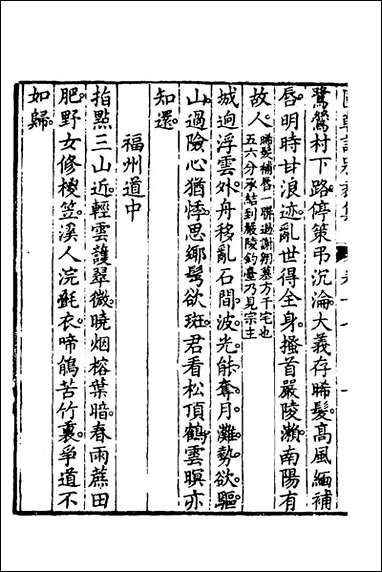 鷺鷥村下路。停策弔沉淪。大義存晞髮。高風緬補
唇。明時甘浪迹。亂世得全身。搔首嚴陵瀨。南陽有
故人。
晞髮補唇一聯過謝翱墓方干宅也
五六分承結到嚴陵釣臺乃見宗主
城迥浮雲外。舟移亂石間。波光能奪月。灘勢欲驅
山。過險心猶悸。思鄉髩欲斑。君看松頂鶴。雲暝亦
知還。
福州道中
指點三山近。輕雲護翠微。曉烟榕葉暗。春雨蔗田
肥。野女修椶笠。溪人浣毧衣。啼鵑苦竹裏。爭道不
如歸。